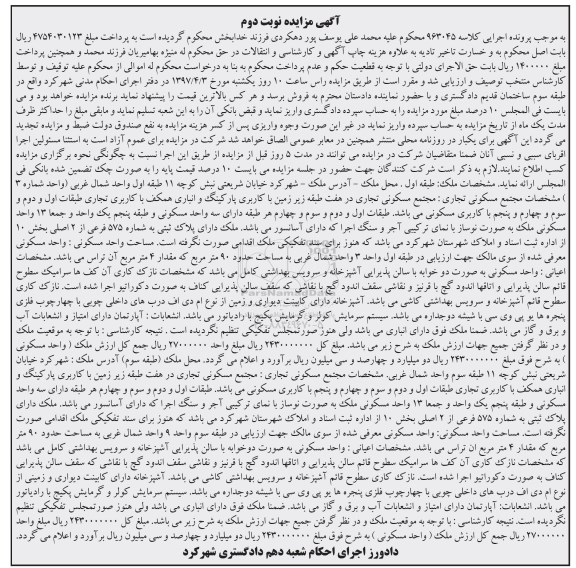 آگهی مزایده نوبت دوم
به موجب پرونده اجرایی کلاسه ۹۶۳۰۴۵ محکوم علیه محمد علی یوسف پور دهکردی فرزند خدابخش محکوم گردیده است به پرداخت مبلغ ۴۷۵۴۰۳۰۱۲۳ ریال
بابت اصل محکوم به و خسارت تاخیر تادیه به علاوه هزینه چاپ آگهی و کارشناسی و انتقالات در حق محکوم له منیژه بهامیریان فرزند محمد و همچنین پرداخت
مبلغ ۱۴۰۰۰۰۰ ریال بابت حق الاجرای دولتی با توجه به قطعیت حکم و عدم پرداخت محکوم به بنا به درخواست محکوم له اموالی از محکوم علیه توقیف و توسط
کارشناس منتخب توصیف و ارزیابی شد و مقرر است از طریق مزایده راس ساعت ۱۰ روز یکشنبه مورخ ۱۳۹۷/۴/۳ در دفتر اجرای احکام مدنی شهرکرد واقع در
طبقه سوم ساختمان قدیم دادگستری و با حضور نماینده دادستان محترم به فروش برسد و هر کس بالاترین قیمت را پیشنهاد نماید برنده مزایده خواهد بود و می
بایست فی المجلس ۱۰ درصد مبلغ مورد مزایده را به حساب سپرده دادگستری واریز نماید و قبض بانکی آن را به این شعبه تسلیم نماید و مابقی مبلغ را حداکثر ظرف
مدت یک ماه از تاریخ مزایده به حساب سپرده واریز نماید در غیر این صورت وجوه واریزی پس از کسر هزینه مزایده به نفع صندوق دولت ضبط و مزایده تجدید
می گردد این آگهی برای یکبار در روزنامه محلی منتشر همچنین در معابر عمومی الصاق خواهد شد شرکت در مزایده برای عموم آزاد است به استثنا مسئولین اجرا
اقربای سببی و نسبی آنان ضمنا متقاضیان شرکت در مزایده می توانند در مدت ۵ روز قبل از مزایده از طریق این اجرا نسبت به چگونگی نحوه برگزاری مزایده
کسب اطلاع نمایند.لازم به ذکر است شرکت کنندگان جهت حضور در جلسه مزایده می بایست ۱۰ درصد قیمت پایه را به صورت چک تضمین شده بانکی فی
المجلس ارائه نماید. مشخصات ملک: طبقه اول ، محل ملک - آدرس ملک - شهرکرد خیابان شریعتی نبش کوچه ۱۱ طبقه اول واحد شمال غربی (واحد شماره ۳
) مشخصات مجتمع مسکونی تجاری : مجتمع مسکونی تجاری در هفت طبقه زیر زمین با کاربری پارکینگ و انباری همکف با کاربری تجاری طبقات اول و دوم و
سوم و چهارم و پنجم با کاربری مسکونی می باشد. طبقات اول و دوم و سوم و چهارم هر طبقه دارای سه واحد مسکونی و طبقه پنجم یک واحد و جمعا ۱۳ واحد
مسکونی ملک به صورت نوساز با نمای ترکیبی آجر و سنگ اجرا که دارای آسانسور می باشد. ملک دارای پلاک ثبتی به شماره ۵۷۵ فرعی از ۲ اصلی بخش ۱۰
از اداره ثبت اسناد و املاک شهرستان شهرکرد می باشد که هنوز برای سند تفکیکی ملک اقدامی صورت نگرفته است. مساحت واحد مسکونی : واحد مسکونی
معرفی شده از سوی مالک جهت ارزیابی در طبقه اول واحد ۳ واحد شمال غربی به مساحت حدود ۹۰ متر مربع که مقدار ۴ متر مربع آن تراس می باشد. مشخصات
اعیانی : واحد مسکونی به صورت دو خوابه با سالن پذیرایی آشپزخانه و سرویس بهداشتی کامل می باشد که مشخصات نازک کاری آن کف ها سرامیک سطوح
قائم سالن پذیرایی و اتاقها اندود گچ با قرنیز و نقاشی سقف اندود گچ با نقاشی که سقف سالن پذیرایی کناف به صورت دکوراتیو اجرا شده است. نازک کاری
سطوح قائم آشپزخانه و سرویس بهداشتی کاشی می باشد. آشپزخانه دارای کابینت دیواری و زمین از نوع ام دی اف درب های داخلی چوبی با چهارچوب فلزی
پنجره ها یو پی وی سی با شیشه دوجداره می باشد. سیستم سرمایش کولر و گرمایش پکیج با رادیاتور می باشد. انشعابات : آپارتمان دارای امتیاز و انشعابات آب
و برق و گاز می باشد. ضمنا ملک فوق دارای انباری می باشد ولی هنوز صورتمجلس تفکیکی تنظیم نگردیده است . نتیجه کارشناسی : با توجه به موقعیت ملک
و در نظر گرفتن جمیع جهات ارزش ملک به شرح زیر می باشد. مبلغ کل ۲۴۳۰۰۰۰۰۰۰ ریال مبلغ واحد ۲۷۰۰۰۰۰۰ ریال جمع کل ارزش ملک ( واحد مسکونی
) به شرح فوق مبلغ ۲۴۳۰۰۰۰۰۰۰ ریال دو میلیارد و چهارصد و سی میلیون ریال برآورد و اعلام می گردد. محل ملک (طبقه سوم) آدرس ملک : شهرکرد خیابان
شریعتی نبش کوچه ۱۱ طبقه سوم واحد شمال غربی. مشخصات مجتمع مسکونی تجاری : مجتمع مسکونی تجاری در هفت طبقه زیر زمین با کاربری پارکینگ و
انباری همکف با کاربری تجاری طبقات اول و دوم و سوم و چهارم و پنجم با کاربری مسکونی می باشد. طبقات اول و دوم و سوم و چهارم هر طبقه دارای سه واحد
مسکونی و طبقه پنجم یک واحد و جمعا ۱۳ واحد مسکونی ملک به صورت نوساز با نمای ترکیبی آجر و سنگ اجرا که دارای آسانسور می باشد. ملک دارای
پلاک ثبتی به شماره ۵۷۵ فرعی از ۲ اصلی بخش ۱۰ از اداره ثبت اسناد و املاک شهرستان شهرکرد می باشد که هنوز برای سند تفکیکی ملک اقدامی صورت
نگرفته است. مساحت واحد مسکونی: واحد مسکونی معرفی شده از سوی مالک جهت ارزیابی در طبقه سوم واحد ۹ واحد شمال غربی به مساحت حدود ۹۰ متر
مربع که مقدار ۴ متر مربع ان تراس می باشد. مشخصات اعیانی : واحد مسکونی به صورت دوخوابه با سالن پذیرایی آشپزخانه و سرویس بهداشتی کامل می باشد
که مشخصات نازک کاری آن کف ها سرامیک سطوح قائم سالن پذیرایی و اتاقها اندود گچ با قرنیز و نقاشی سقف اندود گچ با نقاشی که سقف سالن پذیرایی
کناف به صورت دکوراتیو اجرا شده است. نازک کاری سطوح قائم آشپزخانه و سرویس بهداشتی کاشی می باشد. آشپزخانه دارای کابینت دیواری و زمینی از
نوع ام دی اف درب های داخلی چوبی با چهارچوب فلزی پنجره ها یو پی وی سی با شیشه دوجداره می باشد. سیستم سرمایش کولر و گرمایش پکیج با رادیاتور
می باشد. انشعابات: آپارتمان دارای امتیاز و انشعابات آب و برق و گاز می باشد. ضمنا ملک فوق دارای انباری می باشد ولی هنوز صورتمجلس تفکیکی تنظیم
نگردیده است. نتیجه کارشناسی : با توجه به موقعیت ملک و در نظر گرفتن جمیع جهات ارزش ملک به شرح زیر می باشد. مبلغ کل ۲۴۳۰۰۰۰۰۰۰ ریال مبلغ واحد
۲۷۰۰۰۰۰۰ ریال جمع کل ارزش ملک ( واحد مسکونی ) به شرح فوق مبلغ ۲۴۳۰۰۰۰۰۰۰ ریال دو میلیارد و چهارصد و سی میلیون ریال برآورد و اعلام می گردد.
دادورز اجرای احکام شعبه دهم دادگستری شهرکرد